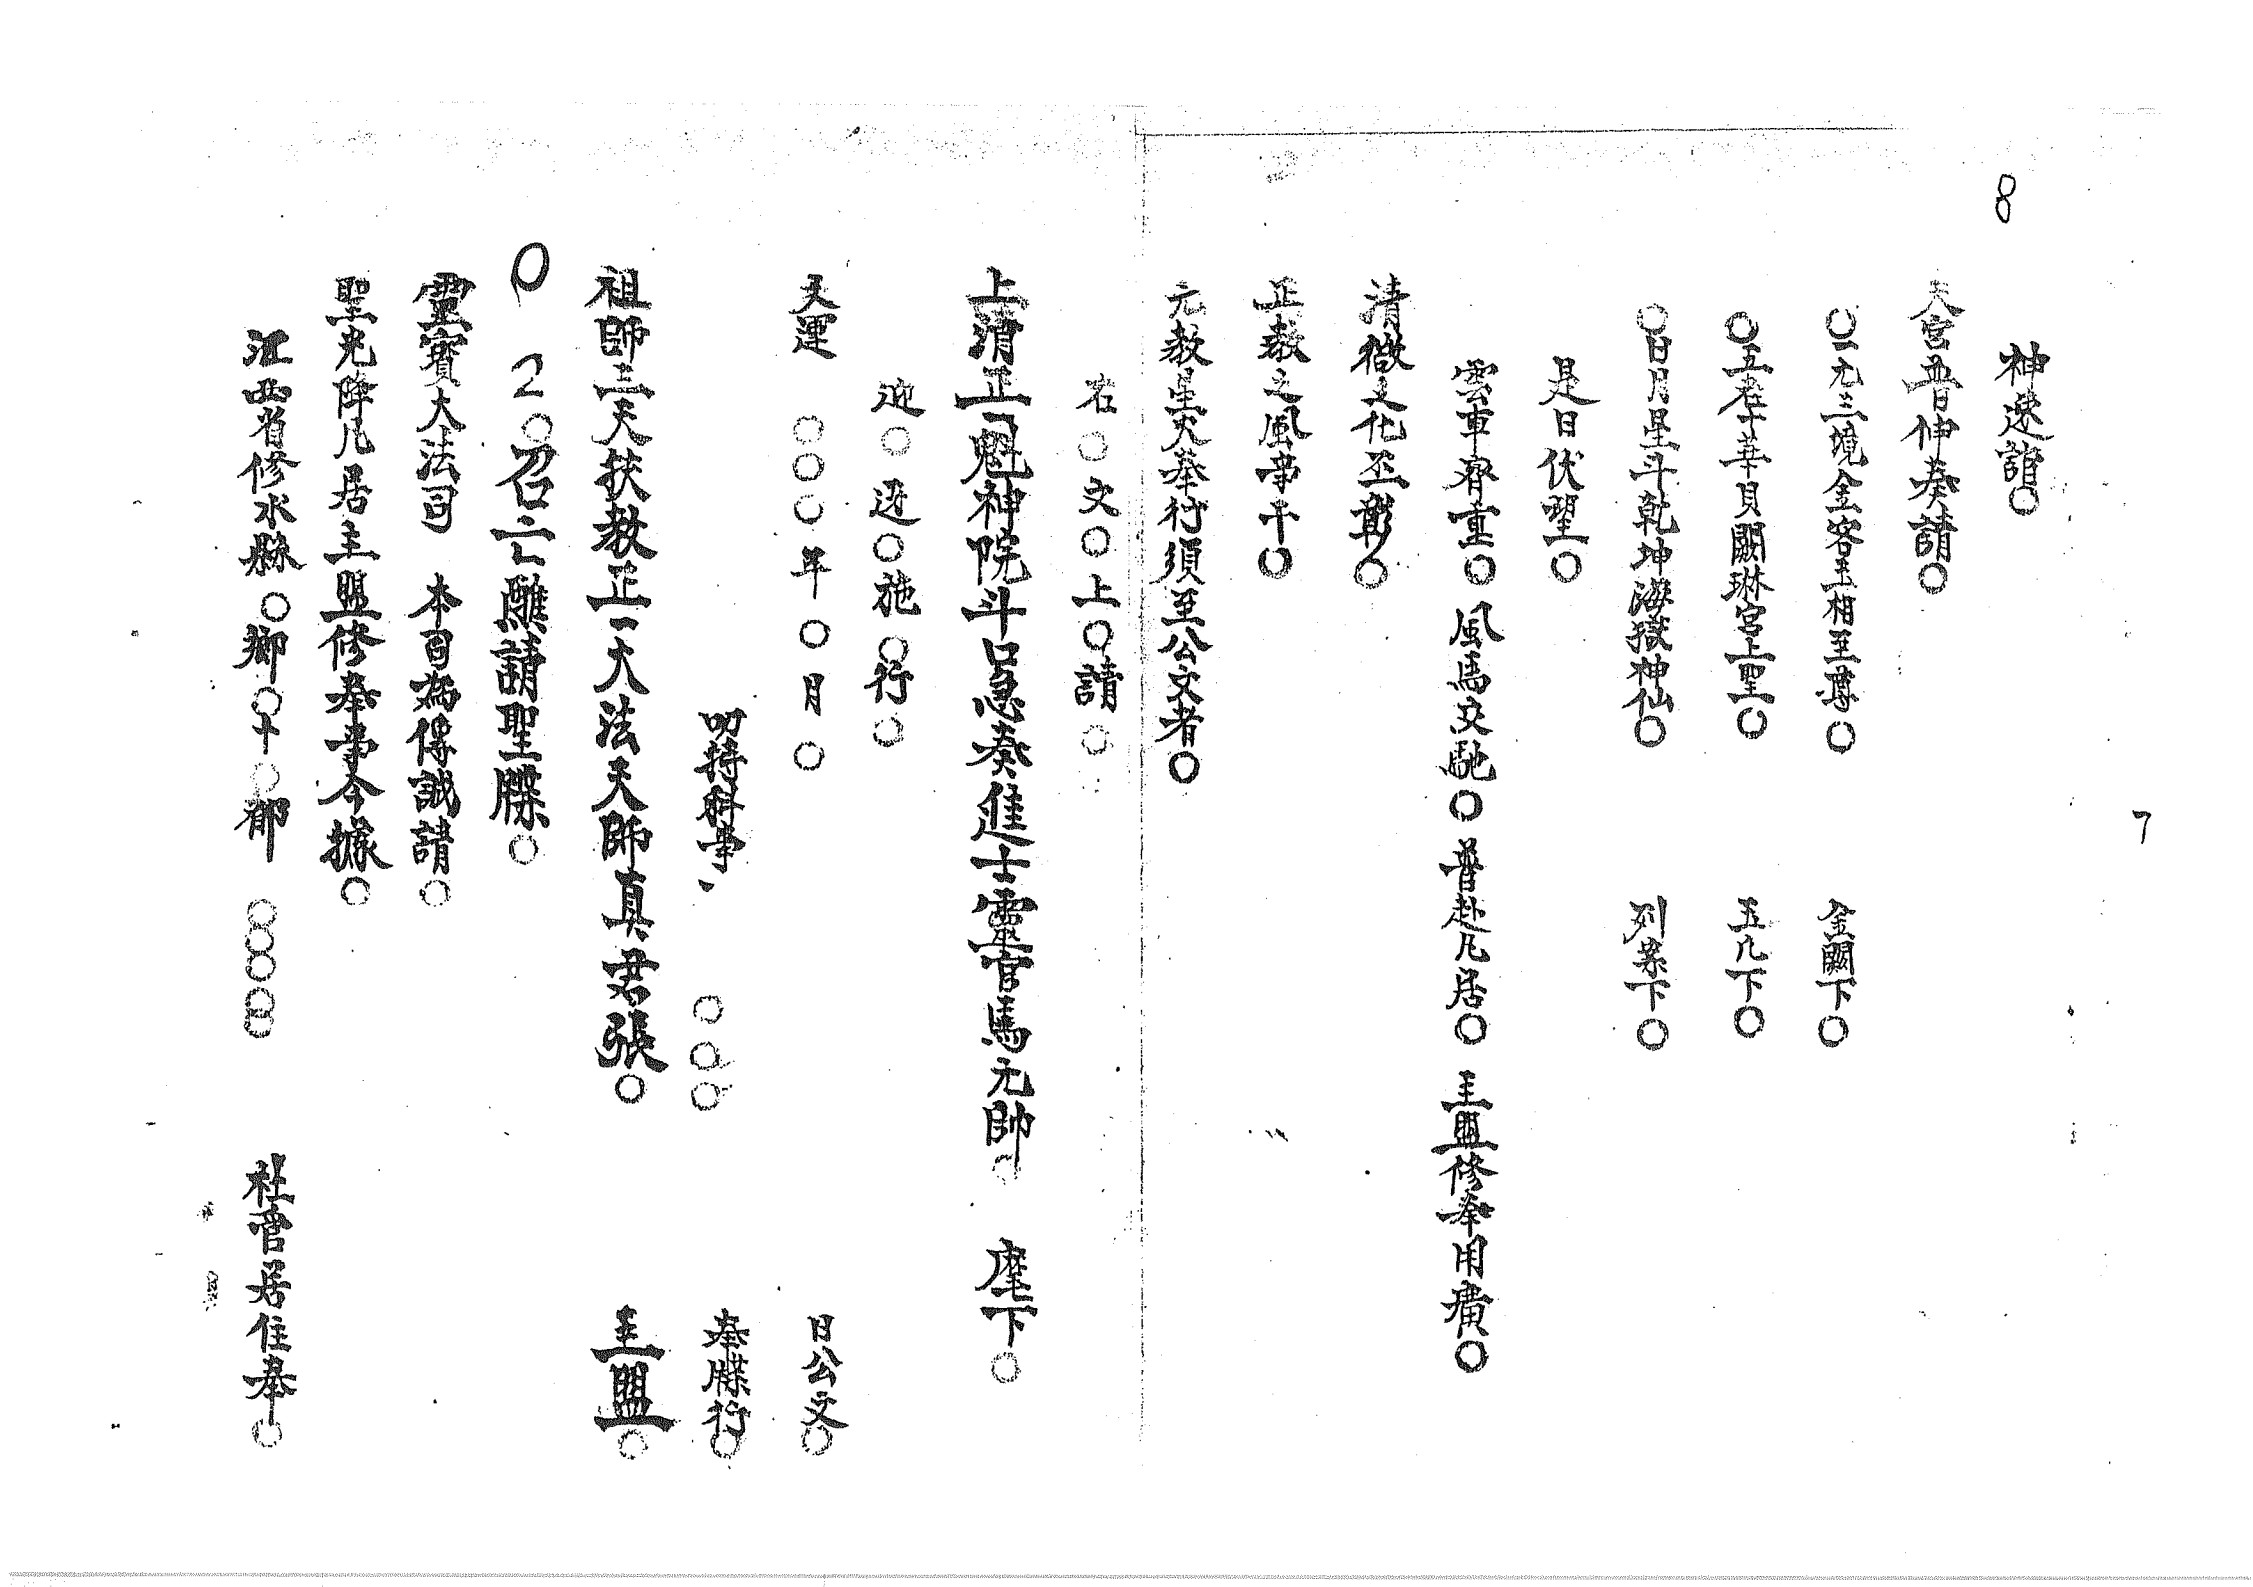 8
7
神還請○
天宮普伸奏請○
○一元三境金容玉相至尊○ 金闕下○
○五老十華貝闕琳宮上聖○ 五几下○
○日月星斗乾坤海嶽神仙○ 列案下○
是日伏望○
雲車齊重○ 風馬交馳○ 普赴凡居○ 主盟修奉用賡○
清微之化丕彰○
正教之風事干○
元教星火奉行須至公文者○
右○文○上○請○
上清正一魁神院斗口急奏進士靈官馬元帥○ 麾下○
迎○迓○施○行○
天運 ○○○年○月○ 日公文○
叨持科事、 ○○○ 奉牒行○
祖師三天扶教正一大法天師真君張○ 主盟○
○2○召亡醮請聖牒○
靈寶大法司 本司為傳誠請○
聖光降凡居主盟修奉事今據○
江西省修水縣○鄉○十○都 ○○○○○ 社官居住奉○